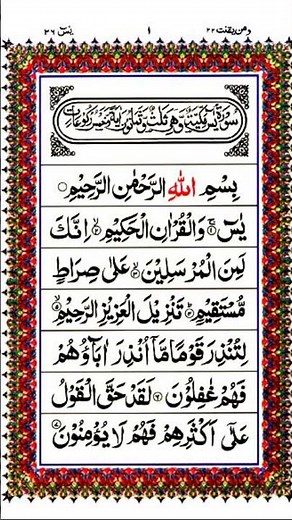 ومن يقنت ٢٢ ١ يٰسٓ ٣٦
سورة يس مكية وهي ثلث وثمانون اية وخمس ركوعات
بِسْمِ اللهِ الرَّحْمٰنِ الرَّحِيْمِ ○
يٰسٓ ۚ ﴿۱﴾ وَالْقُرْاٰنِ الْحَكِيْمِ ۙ ﴿۲﴾ اِنَّكَ
لَمِنَ الْمُرْسَلِيْنَ ۙ ﴿۳﴾ عَلٰى صِرَاطٍ
مُّسْتَقِيْمٍ ؕ ﴿۴﴾ تَنْزِيْلَ الْعَزِيْزِ الرَّحِيْمِ ۙ ﴿۵﴾
لِتُنْذِرَ قَوْمًا مَّاۤ اُنْذِرَ اٰبَآؤُهُمْ
فَهُمْ غٰفِلُوْنَ ﴿۶﴾ لَقَدْ حَقَّ الْقَوْلُ
عَلٰٓى اَكْثَرِهِمْ فَهُمْ لَا يُؤْمِنُوْنَ ﴿۷﴾